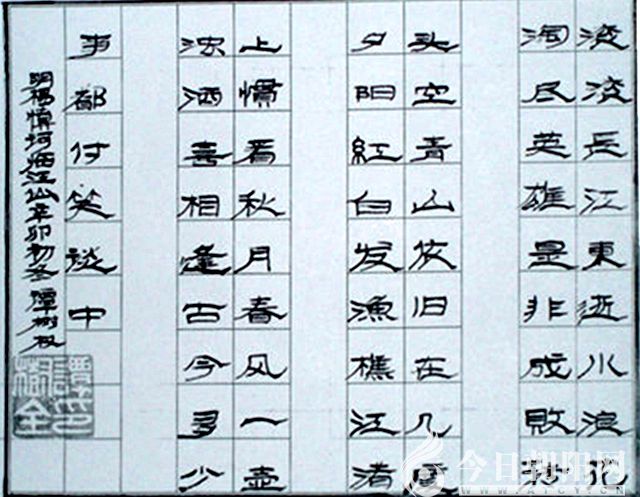 滚滚長江東逝水浪花
淘尽英雄是非成敗转
头空青山依旧在几度
夕阳紅白发漁樵江渚
上慣看秋月春风一壶
浊酒喜相逢古今多少
事都付笑谈中
明楊慎词临江仙辛卯初冬
今日朝阳网